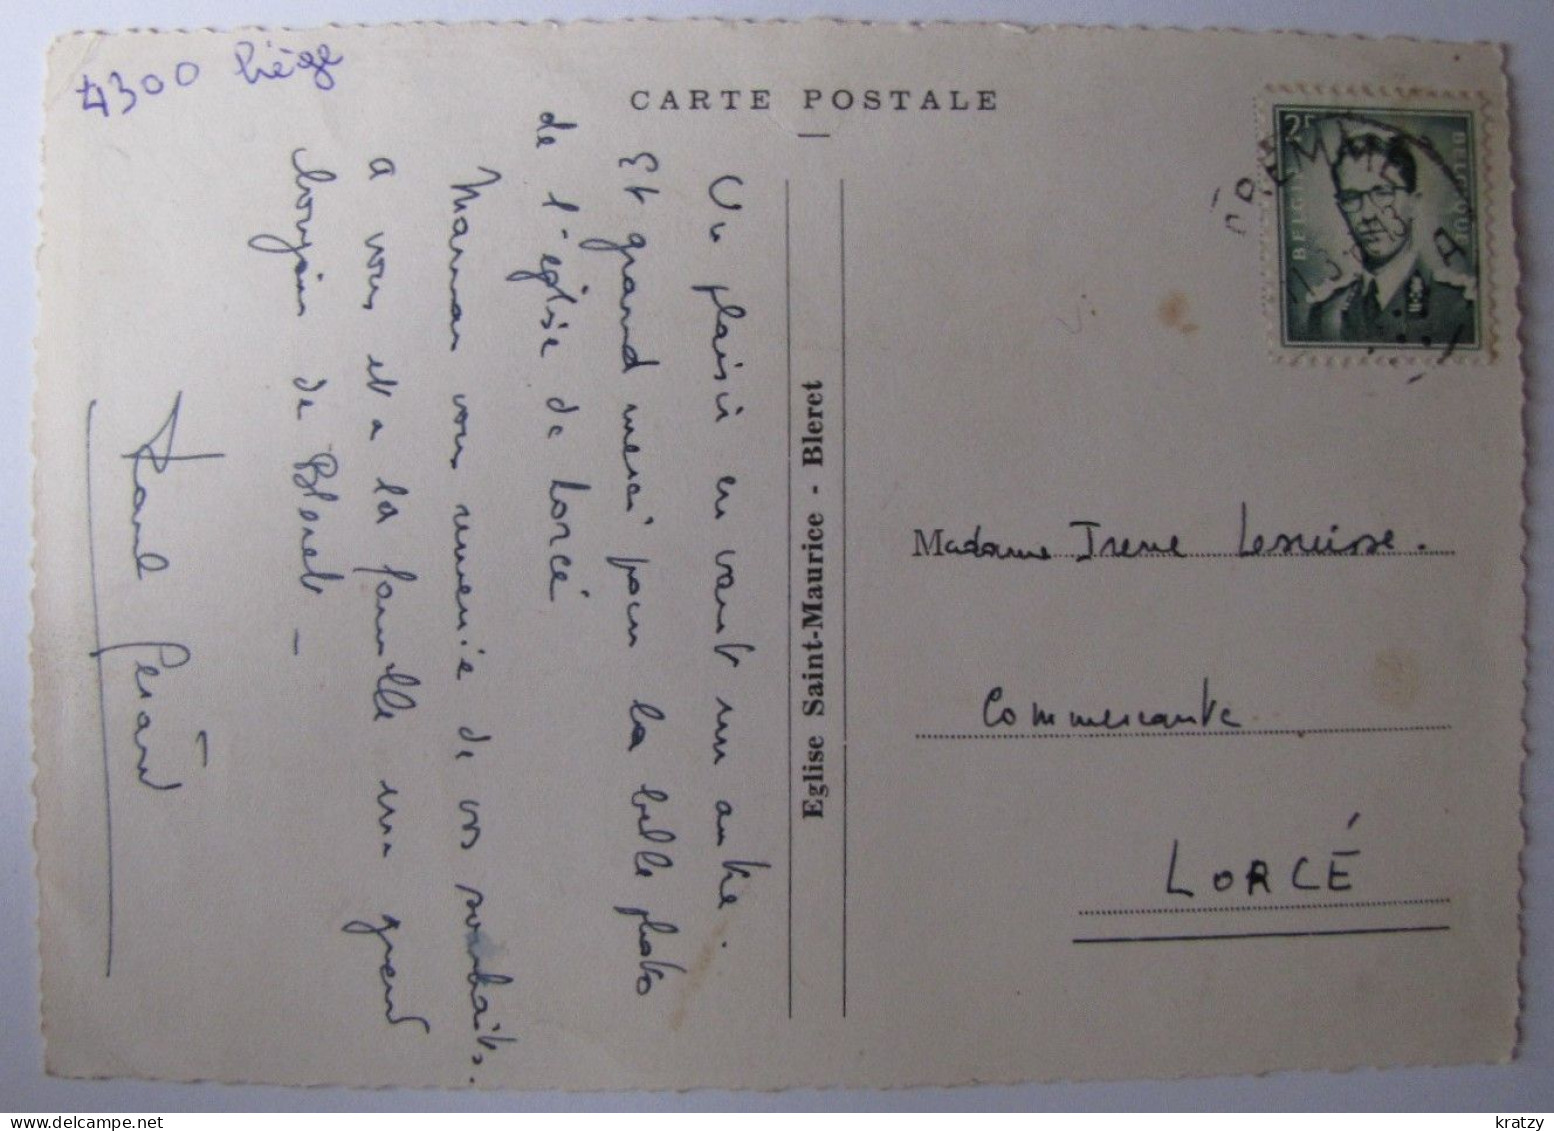 4300 Liège
CARTE POSTALE
Un plaisir en vaut un autre.
Et grand merci pour la belle photo
de l'eglise de Lorcé
Maman vous remercie de vos souhaits.
a vous et a la famille un grand
bonjour de Bleret -
Gérard
Eglise Saint-Maurice - Bleret
2F
BELGIE
BELGIQUE
Madame Irene Lesuisse.
Commercante
LORCÉ
delcampe.net
kratzy